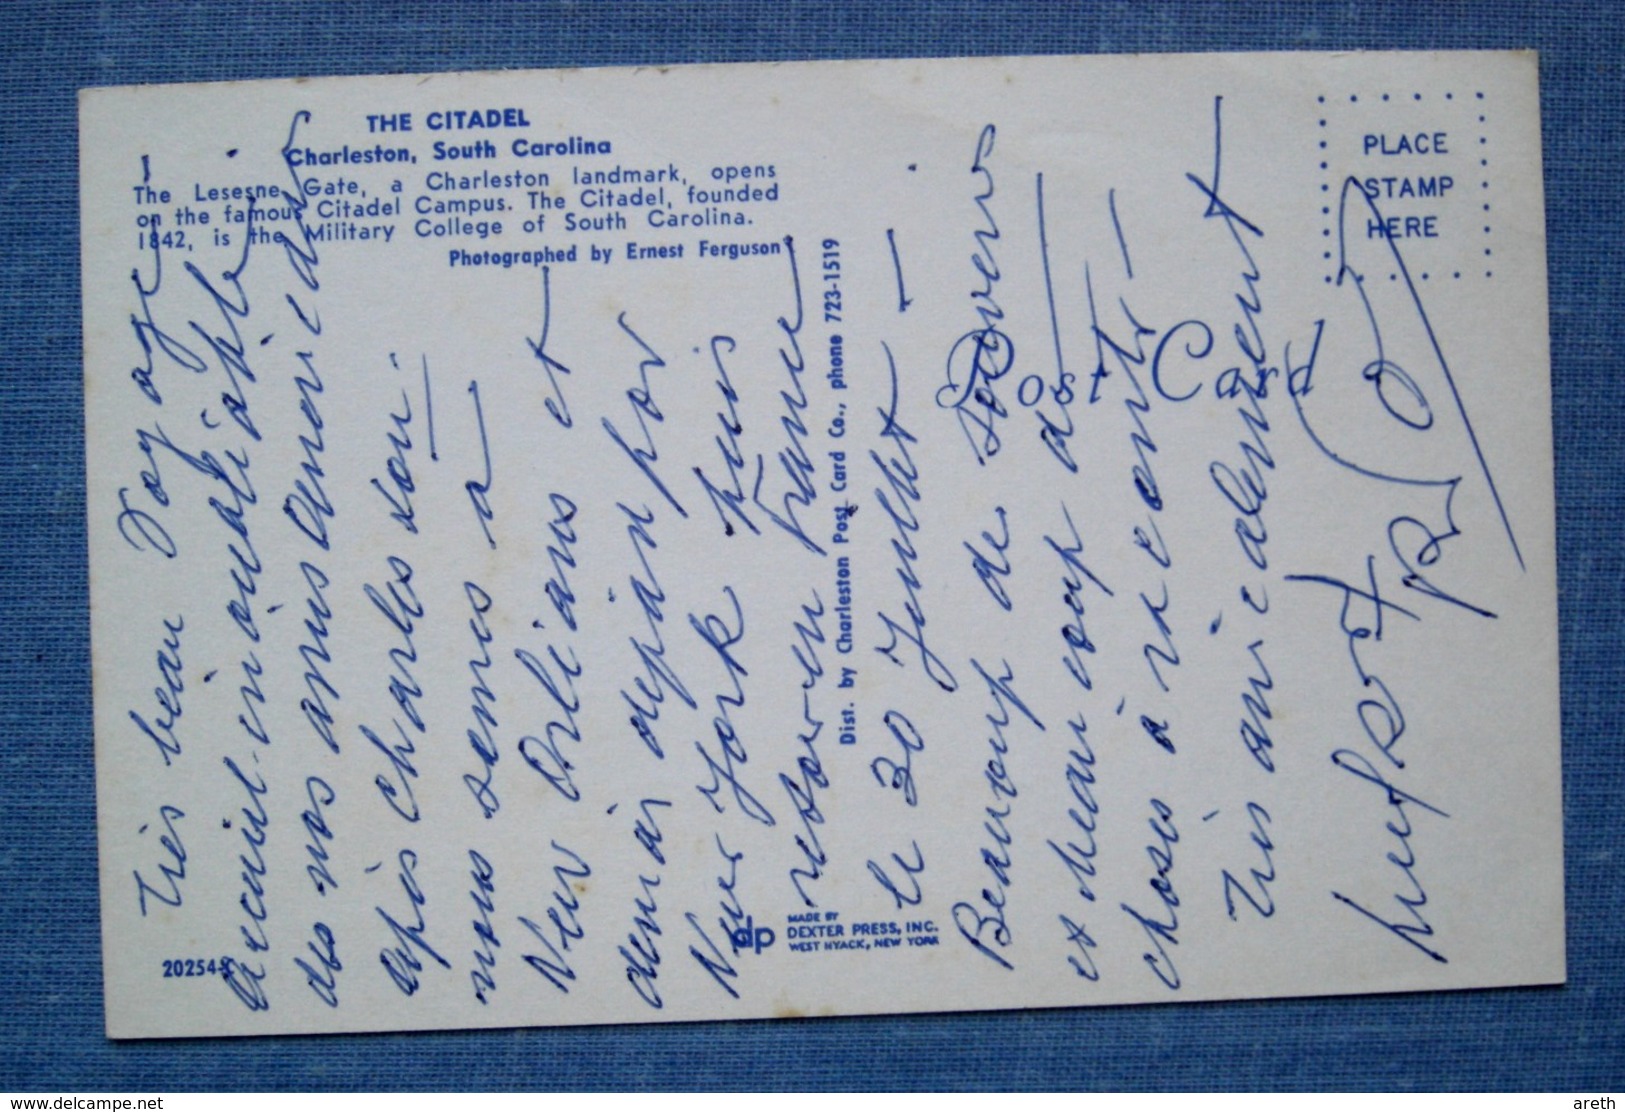 THE CITADEL
Charleston, South Carolina
The Lesesne Gate, a Charleston landmark, opens
on the famous Citadel Campus. The Citadel, founded
1842, is the Military College of South Carolina.
Photographed by Ernest Ferguson
Dist. by Charleston Post Card Co., phone 723-1519
PLACE
STAMP
HERE
Post Card
20254-C
dp
MADE BY
DEXTER PRESS, INC.
WEST NYACK, NEW YORK
Très beau Voyage -
accueil inoubliable
de nos amis americains
après Charleston.
nous semes a
New Orlians et
demain depian por
New York puis
retour en France
le 30 Juillet -
Beaucoup de souvenirs
et beaucoup de
choses à raconter -
Très amicalement
www.delcampe.net
areth